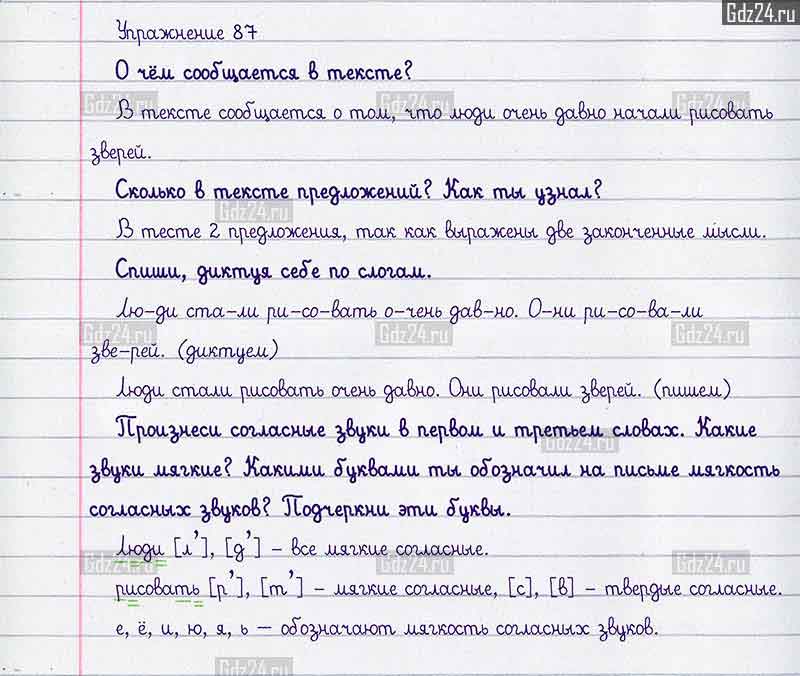 Gdz24.ru
Упражнение 87
О чём сообщается в тексте?
Gdz24.ru Gdz24.ru Gdz24.ru
В тексте сообщается о том, что люди очень давно начали рисовать
зверей.
Сколько в тексте предложений? Как ты узнал?
Gdz24.ru
В тесте 2 предложения, так как выражены две законченные мысли.
Спиши, диктуя себе по слогам.
Лю-ди ста-ли ри-со-вать о-чень дав-но. О-ни ри-со-ва-ли
Gdz24.ru Gdz24.ru Gdz24.ru
зве-рей. (диктуем)
Люди стали рисовать очень давно. Они рисовали зверей. (пишем)
Произнеси согласные звуки в первом и третьем словах. Какие
Gdz24.ru
звуки мягкие? Какими буквами ты обозначил на письме мягкость
согласных звуков? Подчеркни эти буквы.
Люди [л’], [д’] – все мягкие согласные.
Gdz24.ru Gdz24.ru Gdz24.ru
рисовать [р’], [т’] – мягкие согласные, [с], [в] – твердые согласные.
е, ё, и, ю, я, ь — обозначают мягкость согласных звуков.
Gdz24.ru